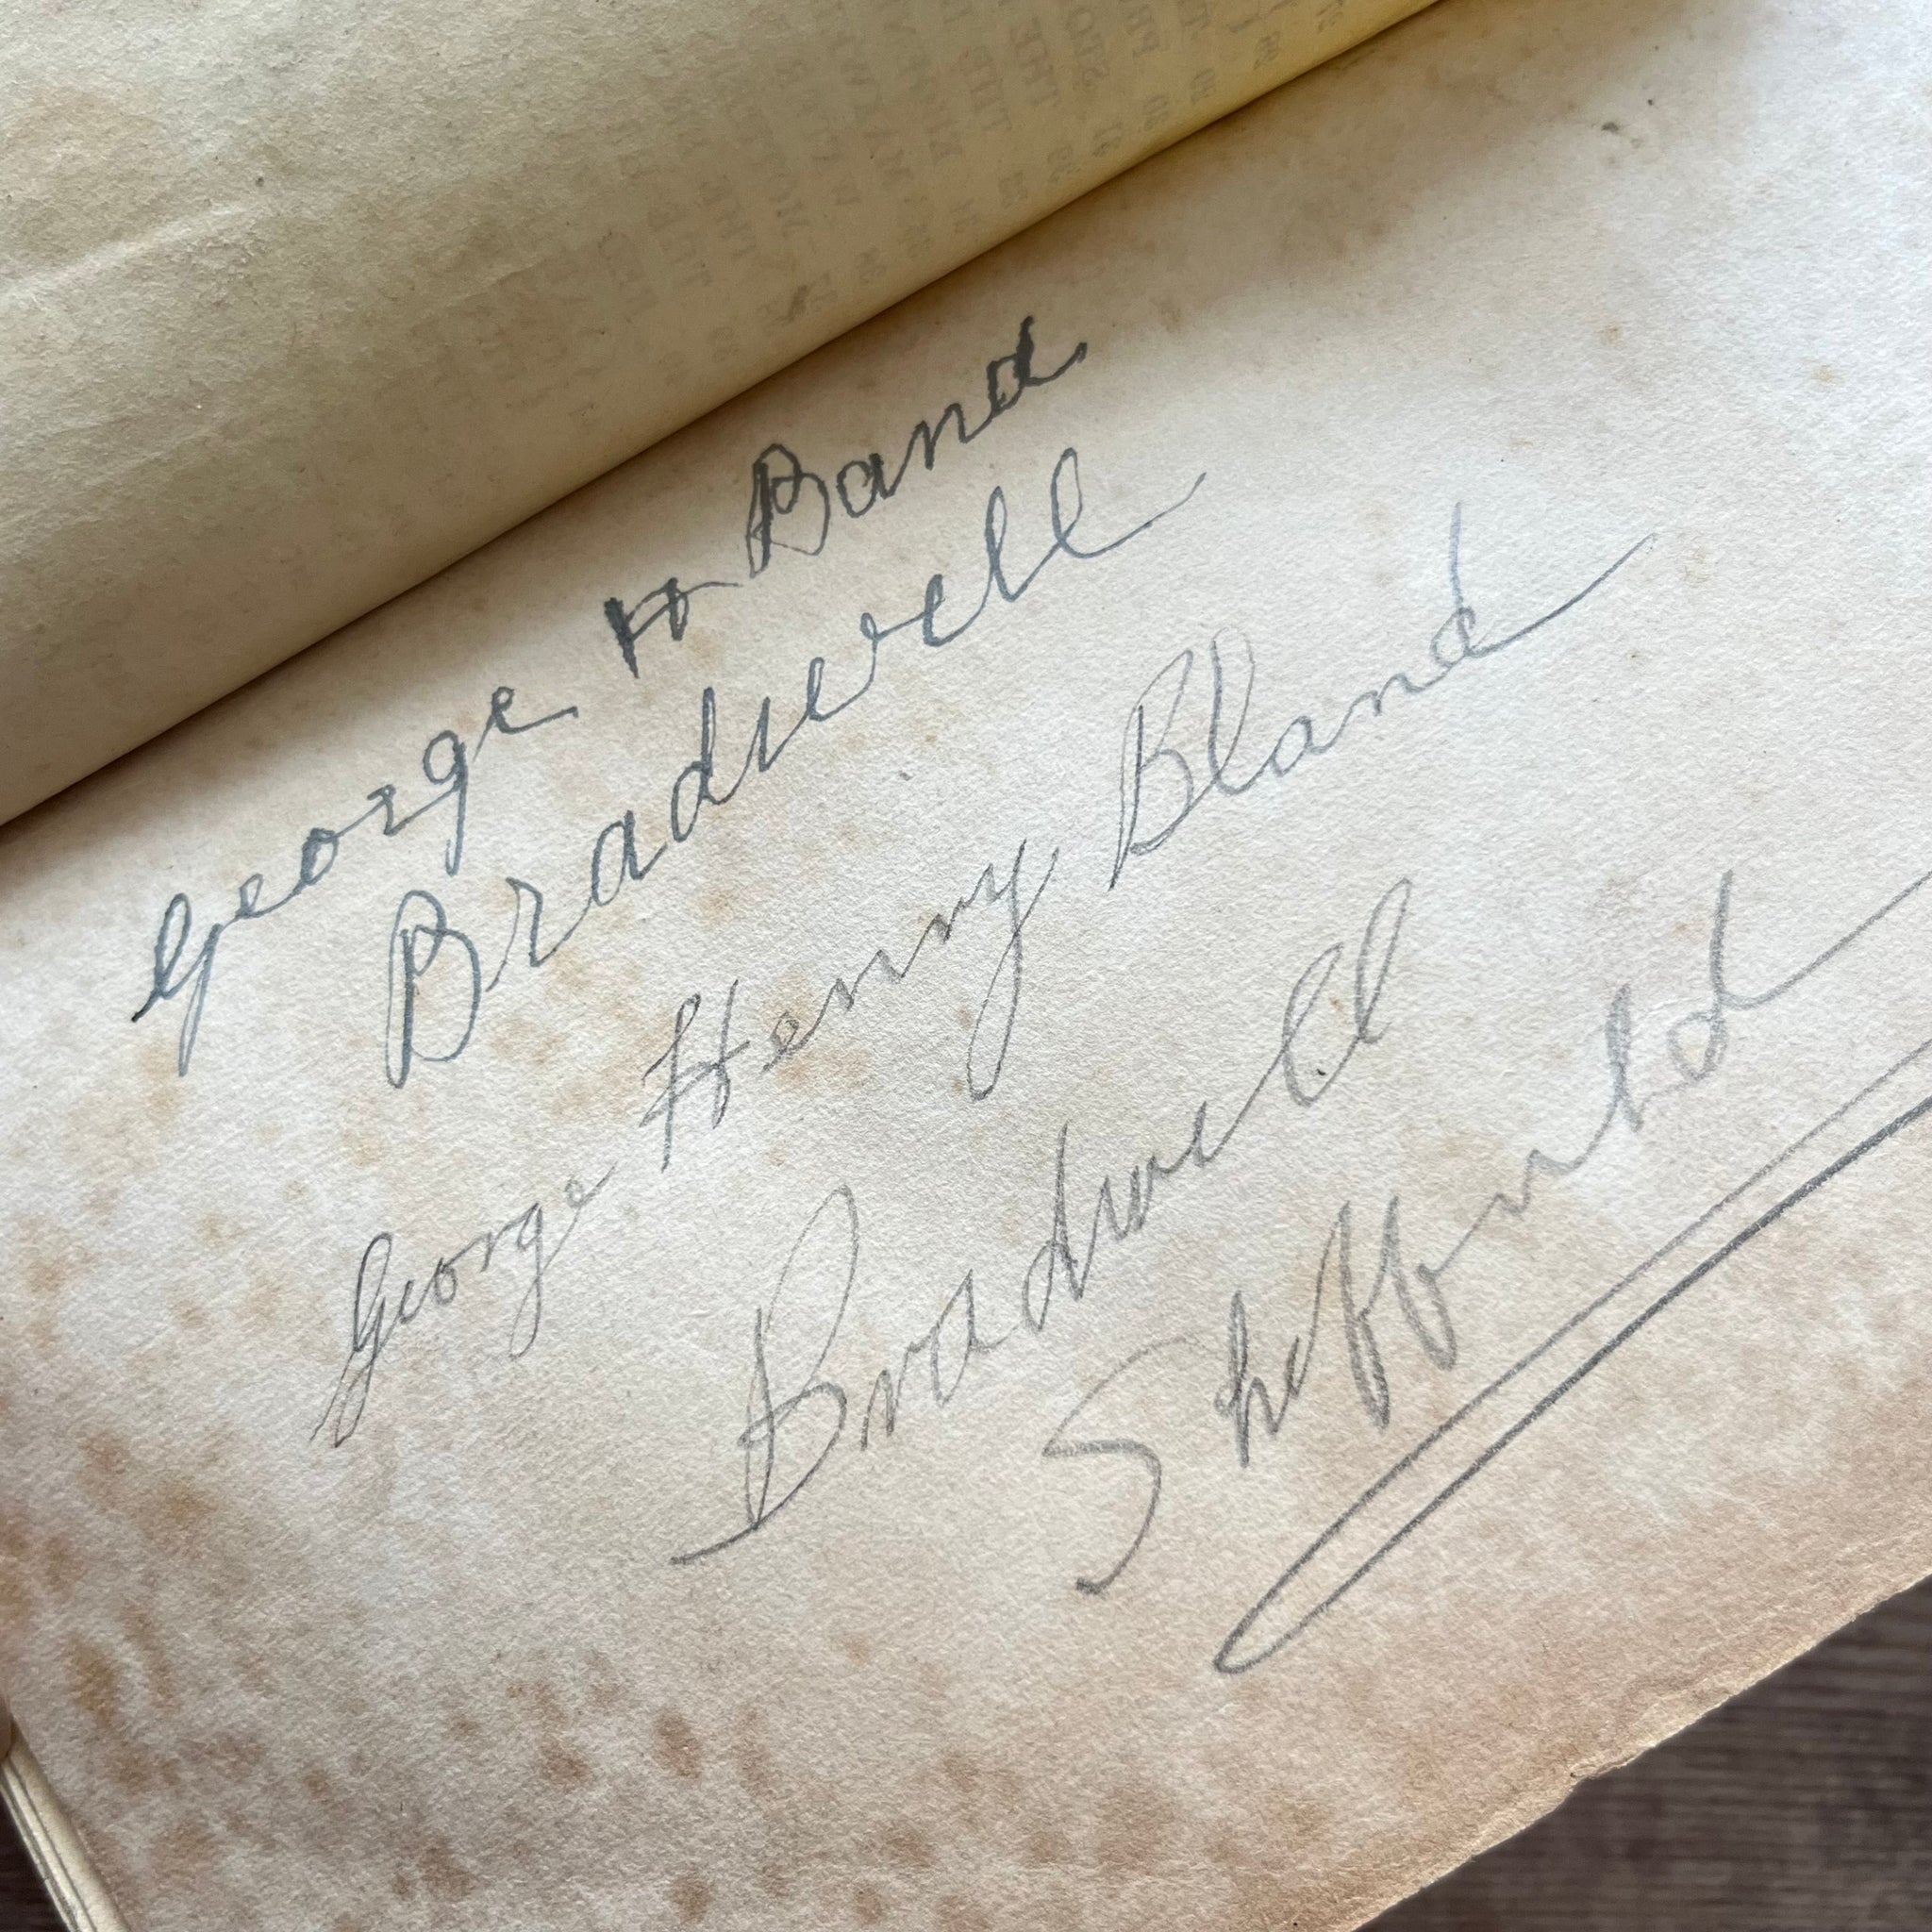 George H Band
Bradwell
George Henry Bland
Bradwell
Sheffield